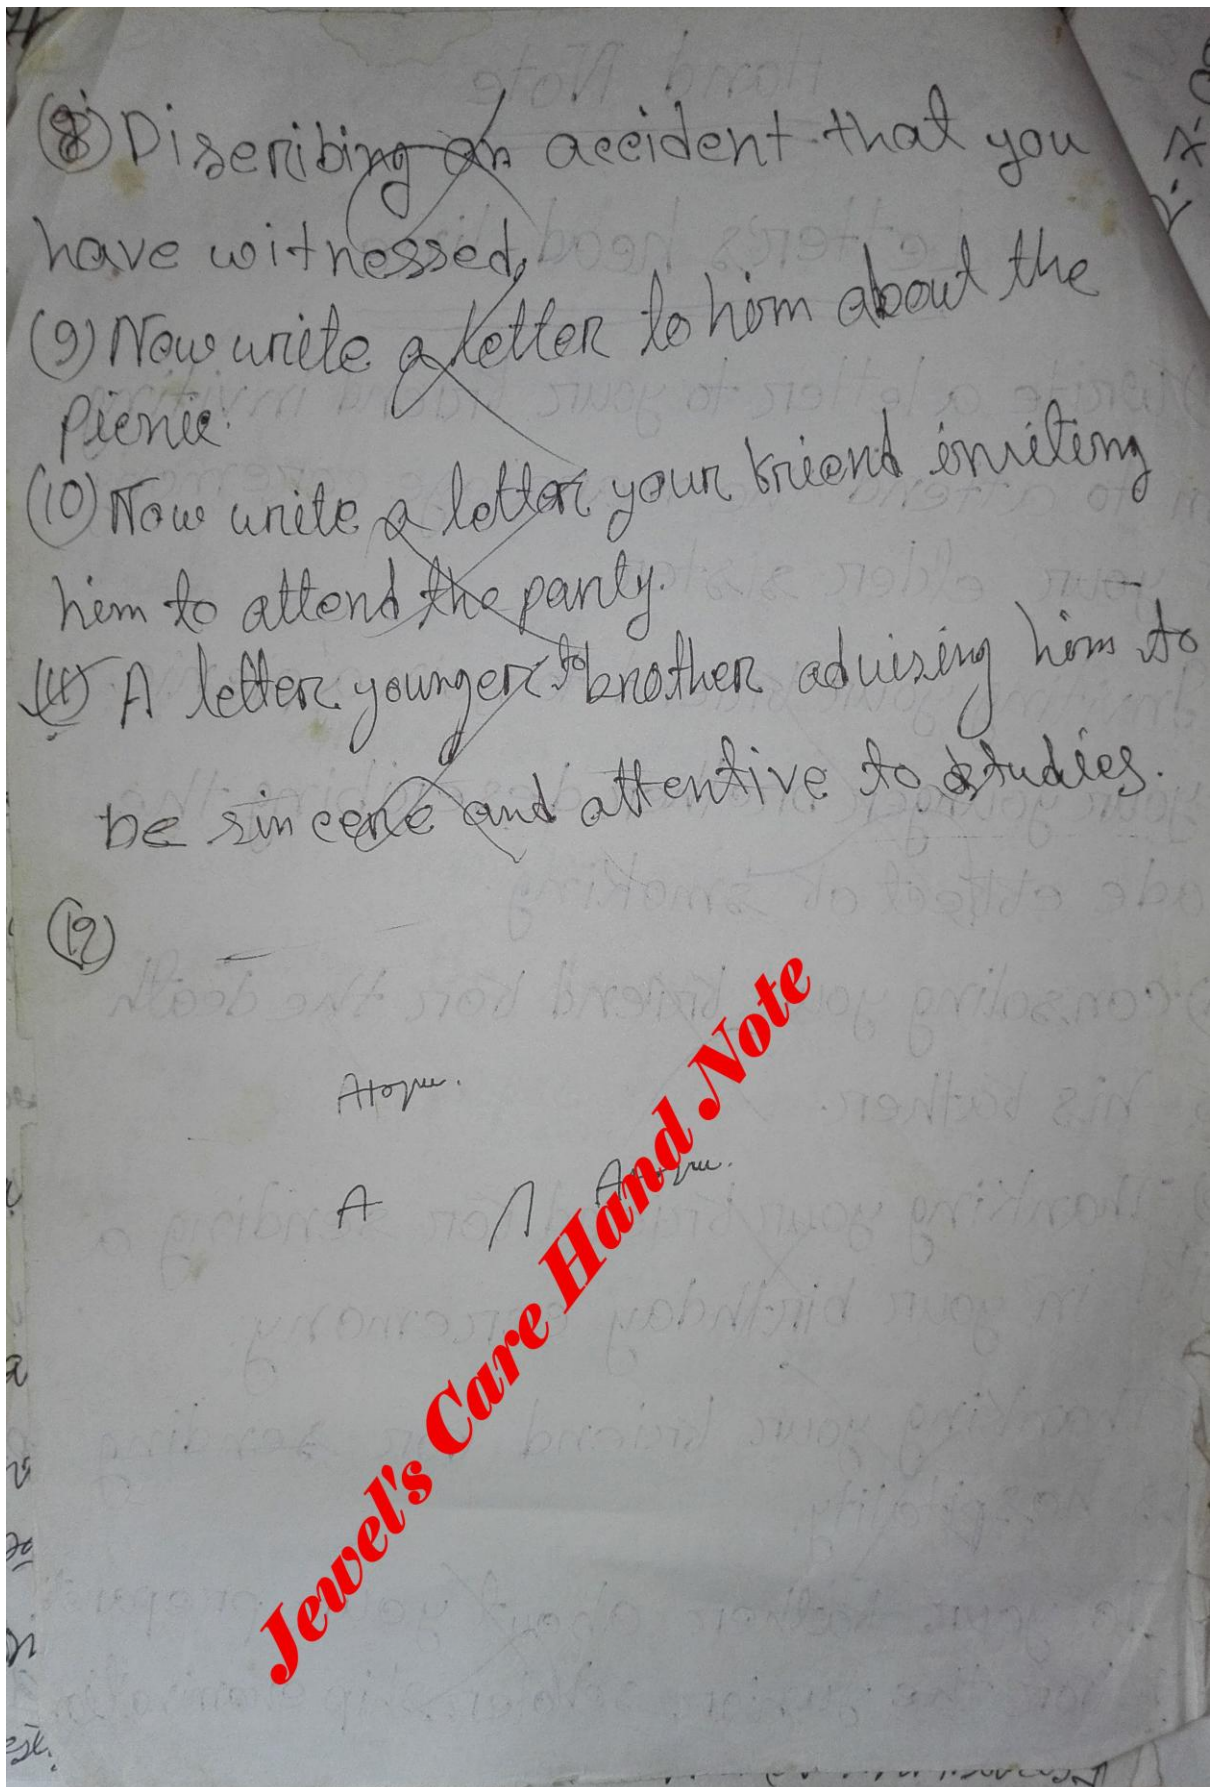 (8) Discribing an accident that you
have witnessed.
(9) Now write a letter to him about the
Picnic.
(10) Now write a letter your friend inviting
him to attend the party.
(11) A letter younger to brother advising him to
be sincere and attentive to studies.
(12)
A
Jewel's Care Hand Note